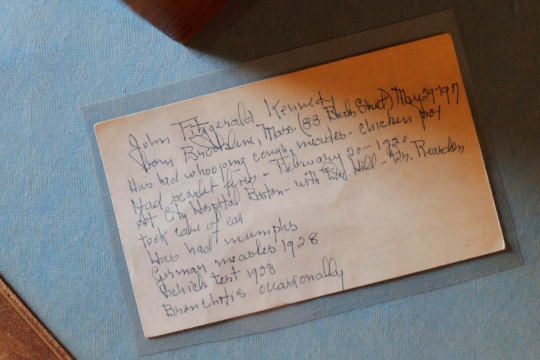 John Fitzgerald Kennedy
born Brookline, Mass (83 Beals Street) May 29-1917
Has had whooping cough, measles - chicken pox
Had scarlet fever - February 20 - 1920
At City Hospital Boston - with Dr. Hill - Dr. Reardon
took care of ear
Has had mumphs
German measles 1928
Schick test 1928
Bronchitis occasionally